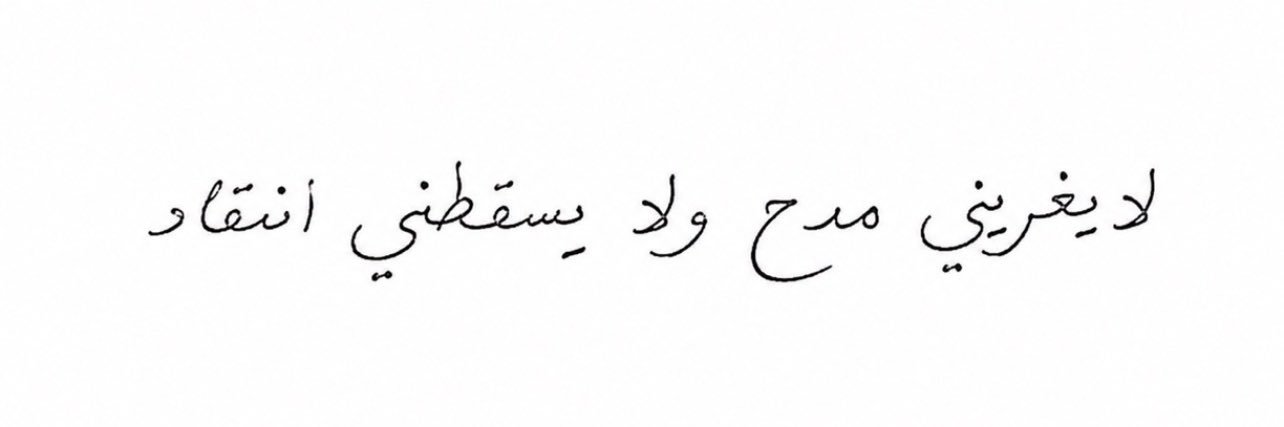 لا يغريني مدح ولا يسقطني انتقاد